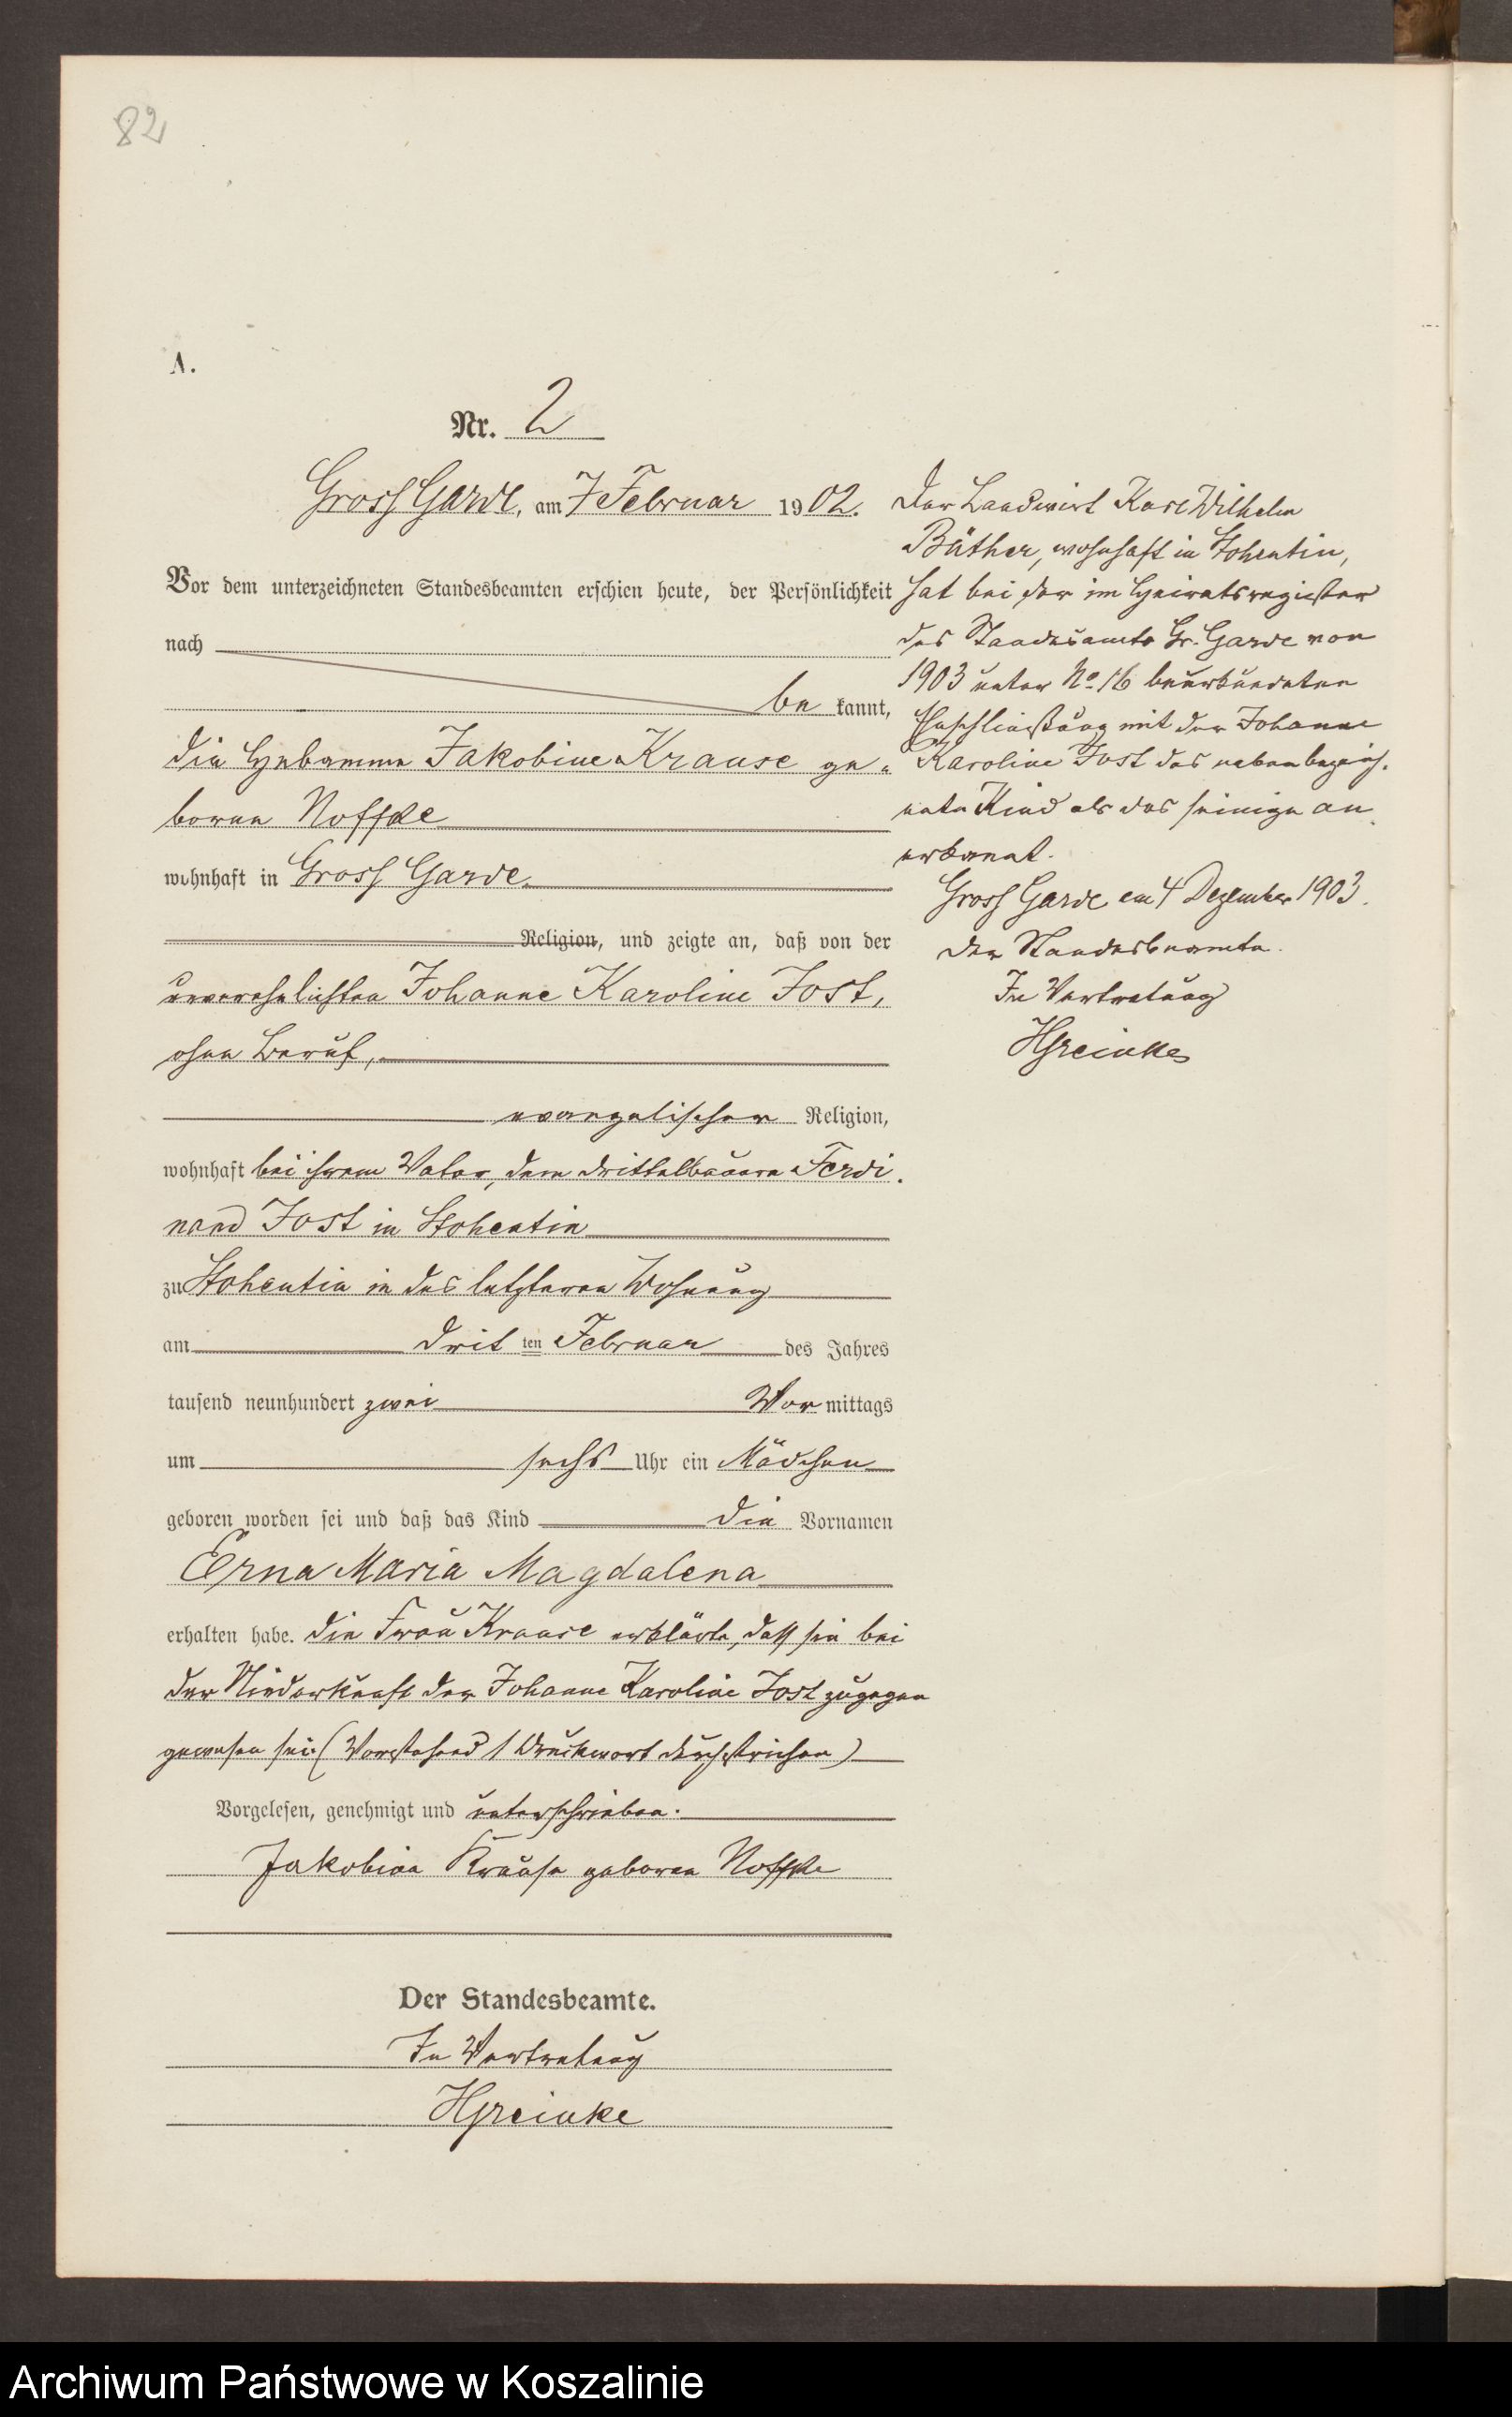 82
A.
Nr. 2
Gross Garde, am 7 Februar 1902.
Vor dem unterzeichneten Standesbeamten erschien heute, der Persönlichkeit
nach
be kannt,
die Hebamme Jakobine Krause ge-
borene Noffke
wohnhaft in Gross Garde
Religion, und zeigte an, daß von der
unverehelichten Johanne Karoline Jost,
ohne Beruf,
evangelischer Religion,
wohnhaft bei ihrem Vater, dem Drittelbauern Ferdi-
nand Jost in Stohentin
zu Stohentin in des letzteren Wohnung
am drit ten Februar des Jahres
tausend neunhundert zwei Vor mittags
um sechs Uhr ein Mädchen
geboren worden sei und daß das Kind die Vornamen
Erna Maria Magdalena
erhalten habe. Die Frau Krause erklärte, daß sie bei
der Niederkunft der Johanne Karoline Jost zugegen
gewesen sei. (Vorstehend 1 Druckwort durchstrichen)
Vorgelesen, genehmigt und unterschrieben.
Jakobine Krause geborene Noffke
Der Standesbeamte.
In Vertretung
HGreinke
Der Landwirt Karl Wilhelm
Büther, wohnhaft in Stohentin,
hat bei der im Heiratsregister
des Standesamts Gr. Garde von
1903 unter No. 16 beurkundeten
Eheschließung mit der Johanne
Karoline Jost das nebenbezeich-
nete Kind als das seinige an-
erkannt.
Gross Garde am 4 Dezember 1903.
Der Standesbeamte.
In Vertretung
HGreinke
Archiwum Państwowe w Koszalinie